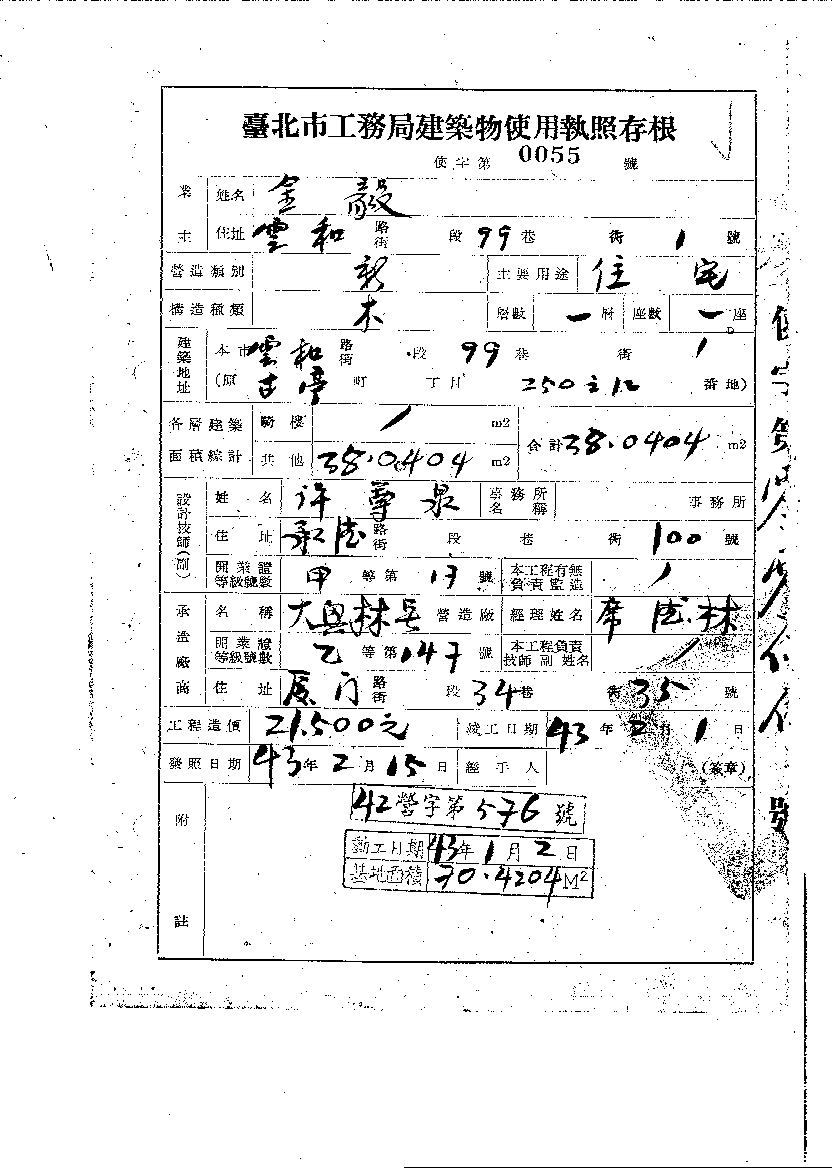 臺北市工務局建築物使用執照存根
使字第 0055 號
業主 姓名 金毅
住址 雲和 路街 段 99 巷 街 1 號
營造類別 新 主要用途 住宅
構造種類 木 層數 一層 座數 一座
建築地址 本市 雲和 路街 段 99 巷 街 1
(原 古亭 町 丁目 250之12 番地)
各層建築面積綜計 騎樓 / m2 合計 38.0404 m2
其他 38.0404 m2
設計技師(副) 姓名 許尊泉 事務所名稱 事務所
住址 承德 路街 段 巷 街 100 號
開業證等級號數 甲 等第 17 號 本工程有無負責監造 /
承造廠商 名稱 大興林長 營造廠 經理姓名 席德林
開業證等級號數 乙 等第 147 號 本工程負責技師副姓名 /
住址 厦门 路街 段 34 巷 街 35 號
工程造價 21.500元 竣工日期 43 年 2 月 1 日
發照日期 43 年 2 月 15 日 經手人 (簽章)
附註
42營字第576號
動工日期 43年1月2日
基地面積 70.4204 M2